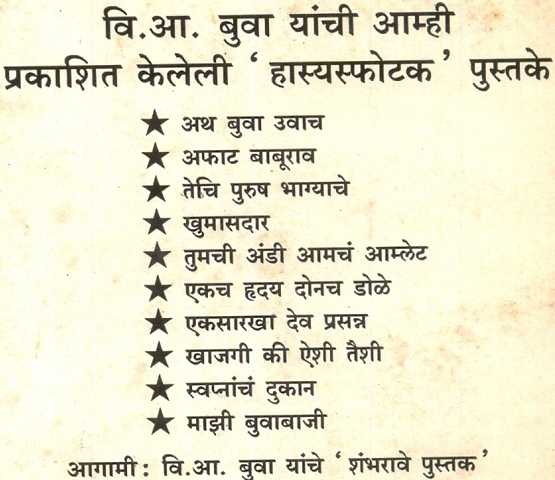 वि.आ. बुवा यांची आम्ही
प्रकाशित केलेली ‘हास्यस्फोटक’ पुस्तके
★ अथ बुवा उवाच
★ अफाट बाबूराव
★ तेचि पुरुष भाग्याचे
★ खुमासदार
★ तुमची अंडी आमचं आम्लेट
★ एकच हृदय दोनच डोळे
★ एकसारखा देव प्रसन्न
★ खाजगी की ऐशी तैशी
★ स्वप्नांचं दुकान
★ माझी बुवाबाजी
आगामी : वि.आ. बुवा यांचे ‘शंभरावे पुस्तक’